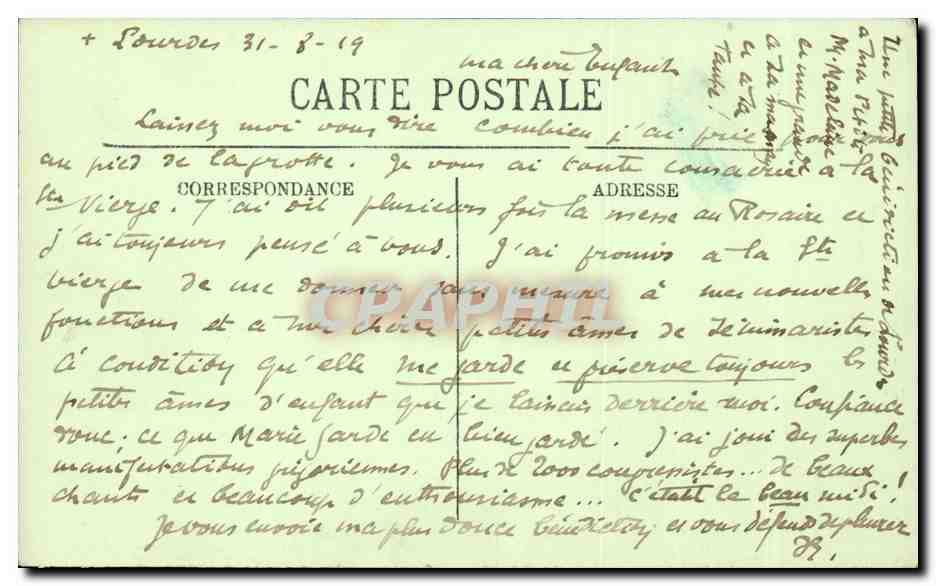 + Lourdes 31-8-19
ma chère Enfant
CARTE POSTALE
Laissez moi vous dire combien j'ai prié pour vous
au pied de la grotte. Je vous ai toute consacrée à la
CORRESPONDANCE ADRESSE
Ste Vierge. J'ai dit plusieurs fois la messe au Rosaire et
j'ai toujours pensé à vous. J'ai promis a la Ste
vierge de me donner sans mesure à mes nouvelles
fonctions et a mes chères petites âmes de séminaristes
CPAPHIL
à condition qu'elle me garde et préserve toujours les
petites âmes d'enfant que je laissais derrière moi. Confiance
donc. ce que Marie garde est bien gardé. J'ai joui des superbes
manifestations. Plus de 2000 congressistes... de beaux
chants et beaucoup d'enthousiasme... c'était le beau midi!
Je vous envoie ma plus douce bénédiction et vous défends de pleurer
Une petite bénédiction de Lourdes
à ma petite
M. Madeleine
et une grande
à sa maman
et à la
Tante!